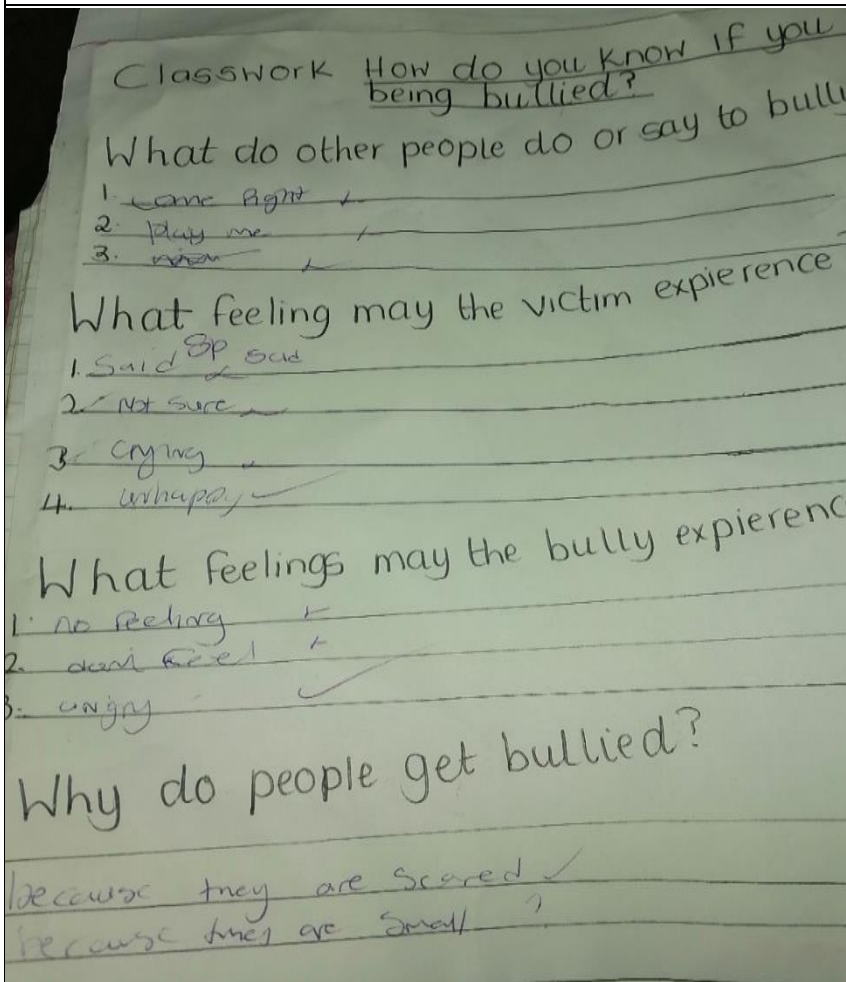 Classwork How do you know if you
being bullied?
What do other people do or say to bully
1. come fight
2. play me
3.
What feeling may the victim expierence
1. Said Sp sad
2. Not sure
3 Crying
4. unhappy
What feelings may the bully expierenc
1. no feeling
2. feel
3. angry
Why do people get bullied?
because they are scared
because they are small ?